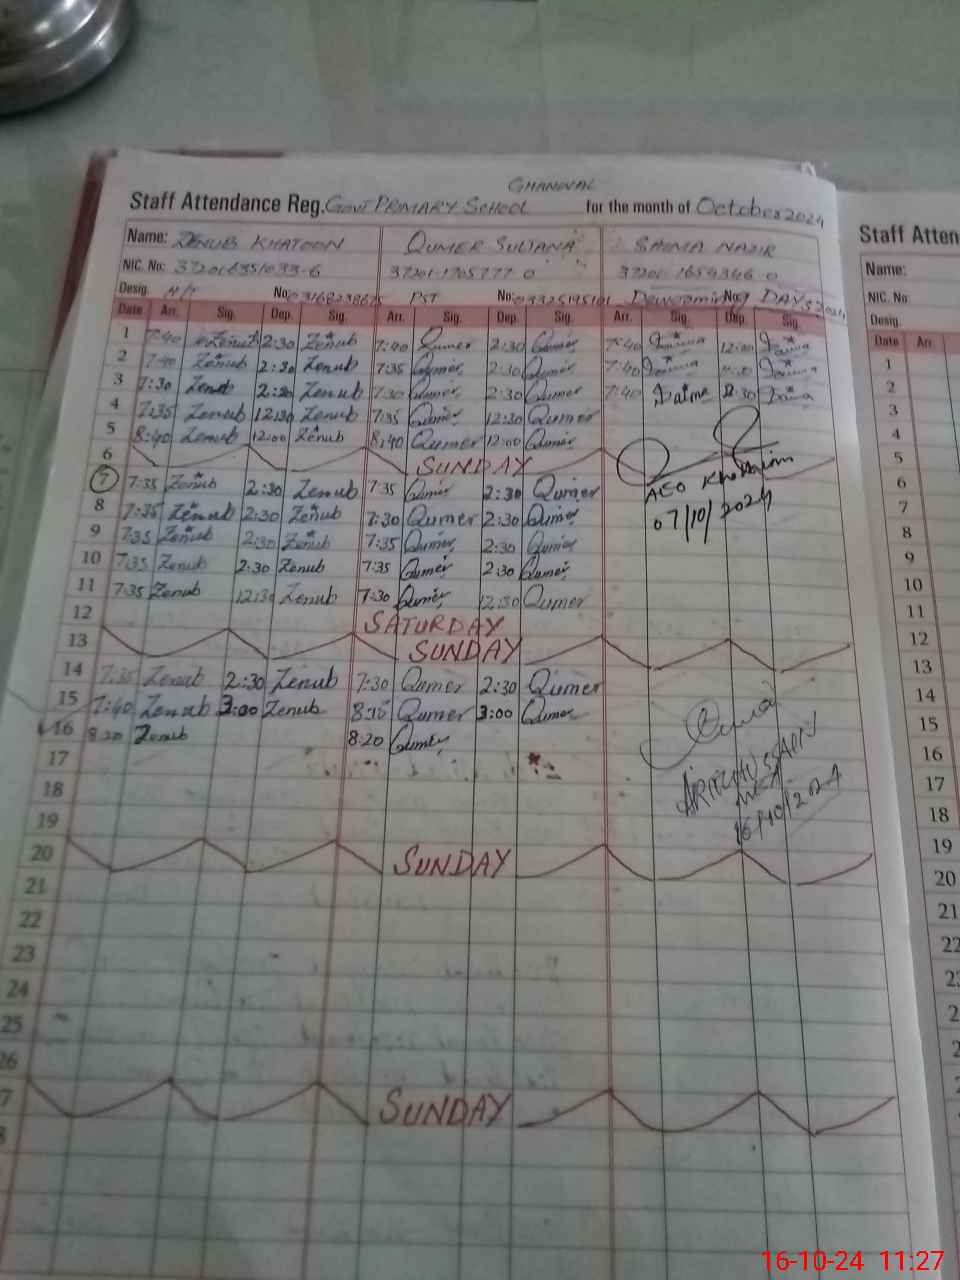 GHANWAL
Staff Attendance Reg. GOVT PRIMARY SCHOOL for the month of October 2024
Name: ZENUB KHATOON QUMER SULTANA SAIMA NAZIR
NIC. No: 37201-1705777 0 37201 1654346-0
Desig. No: PST No: No DAYS
Date Arr. Sig. Dep. Sig. Arr. Sig. Dep. Sig. Arr. Sig. Dep. Sig.
1 7:40 Zenub 2:30 Zenub 7:40 Qumer 2:30 Qumer 7:40 Saima 12:00 Saima
2 7:40 Zenub 2:30 Zenub 7:35 Qumer 2:30 Qumer 7:40 Saima Saima
3 7:30 Zenub 2:30 Zenub 7:30 Qumer 2:30 Qumer 7:40 Saima Saima
4 7:35 Zenub 12:30 Zenub 7:35 Qumer 12:30 Qumer
5 8:40 Zenub 12:00 Zenub 8:40 Qumer 12:00 Qumer
6 SUNDAY
7 7:35 Zenub 2:30 Zenub 7:35 Qumer 2:30 Qumer AEO
8 7:35 Zenub 2:30 Zenub 7:30 Qumer 2:30 Qumer 07/10/2024
9 7:35 Zenub 2:30 Zenub 7:35 Qumer 2:30 Qumer
10 7:35 Zenub 2:30 Zenub 7:35 Qumer 2:30 Qumer
11 7:35 Zenub 12:30 Zenub 7:30 Qumer 12:30 Qumer
12 SATURDAY
13 SUNDAY
14 7:35 Zenub 2:30 Zenub 7:30 Qumer 2:30 Qumer
15 7:40 Zenub 3:00 Zenub 8:15 Qumer 3:00 Qumer
16 8:20 Zenub 8:20 Qumer
17 HUSSAIN
18 MEA
19 16/10/2024
20 SUNDAY
21
22
23
24
25
26
7 SUNDAY
8
Staff Atten
Name:
NIC. No
Desig.
Date Arr.
1
2
3
4
5
6
7
8
9
10
11
12
13
14
15
16
17
18
19
20
21
22
16-10-24 11:27